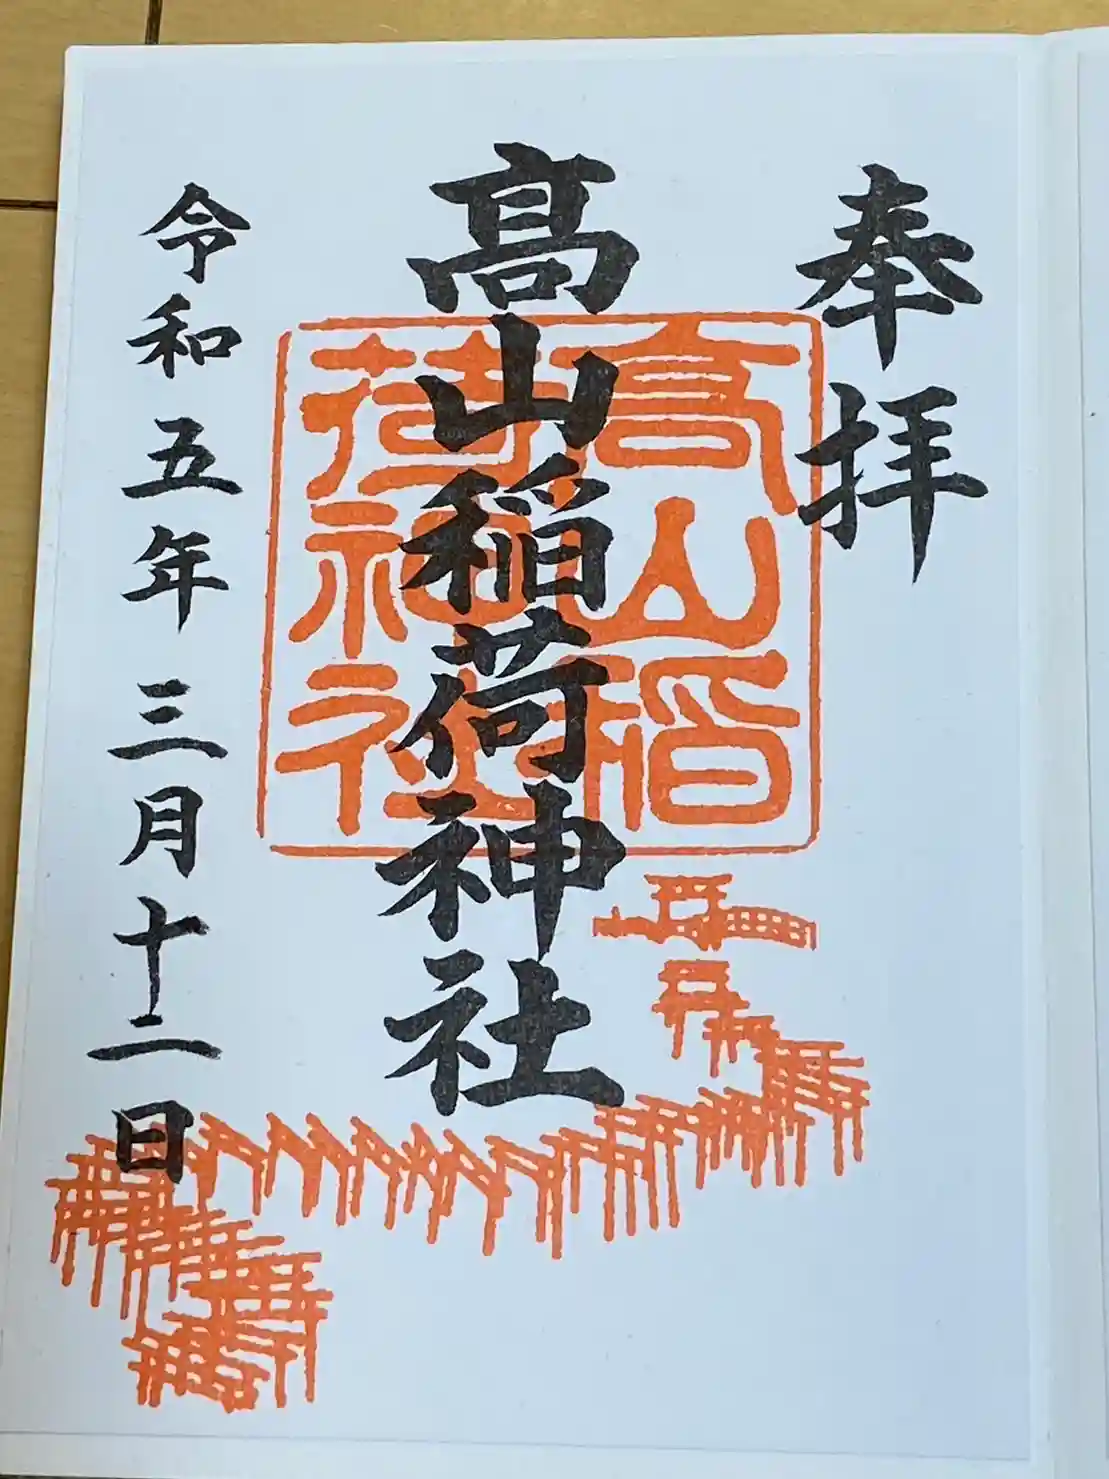 奉拝
髙山稲荷神社
高山稲
荷神社
令和五年三月十二日